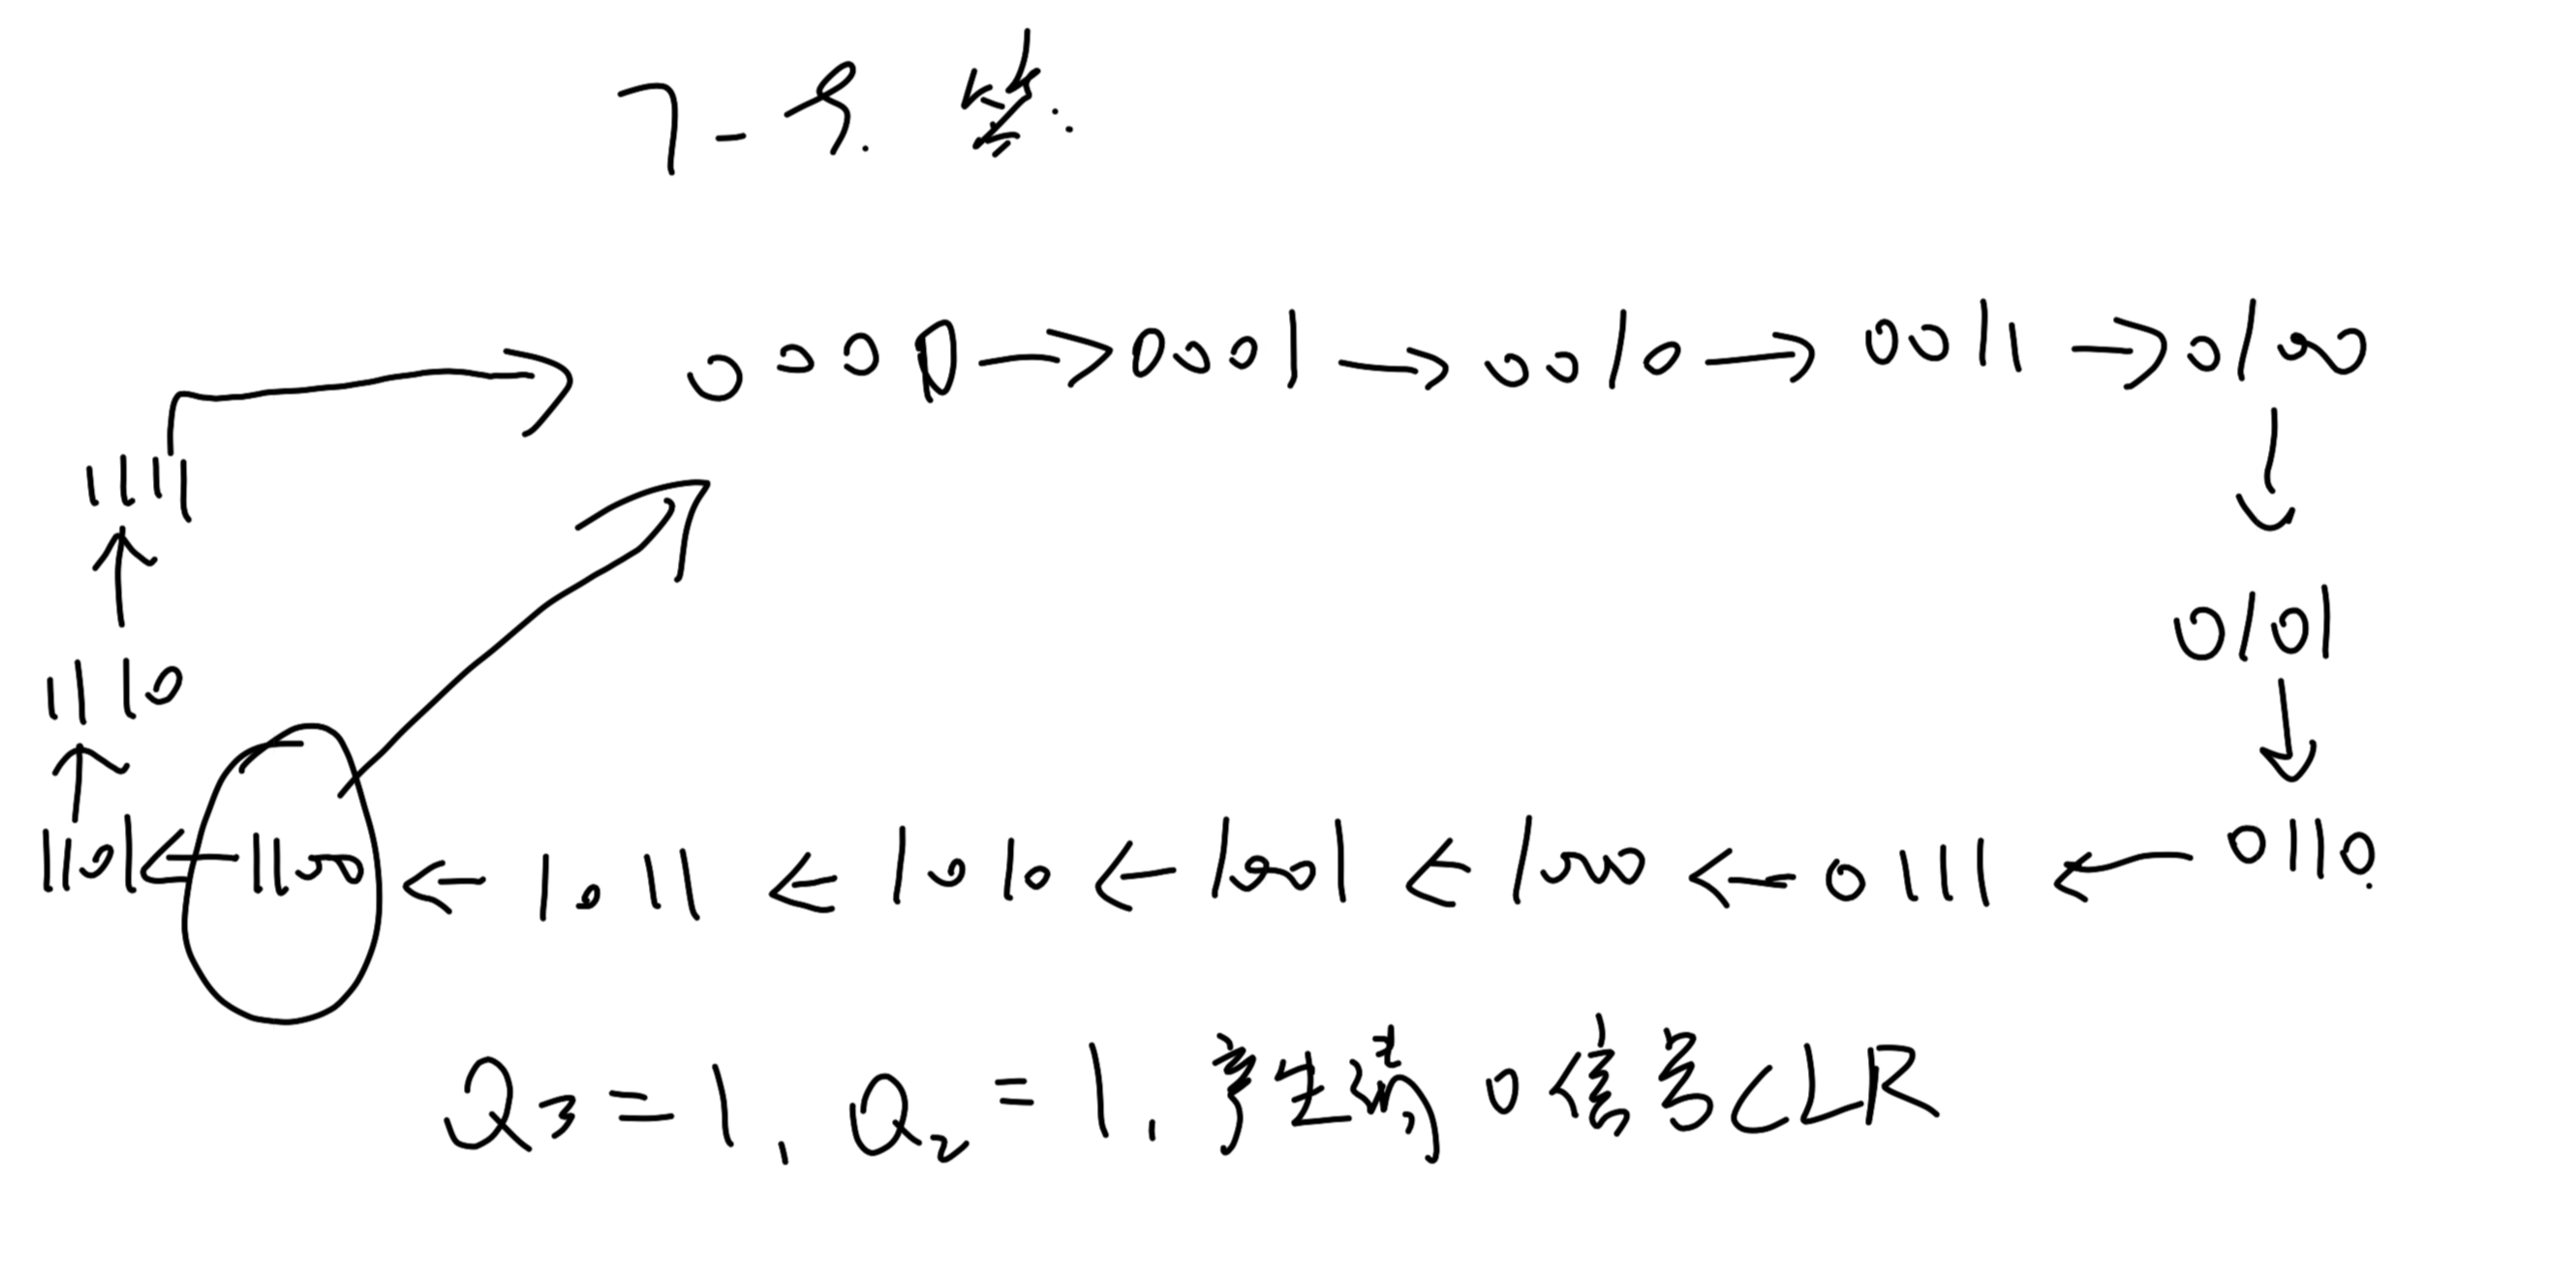 7-9. 答:
0000→0001→0010→0011→0100
1111
0101
1110
1101←1100←1011←1010←1001←1000←0111←0110
Q3=1, Q2=1, 产生清0信号CLR